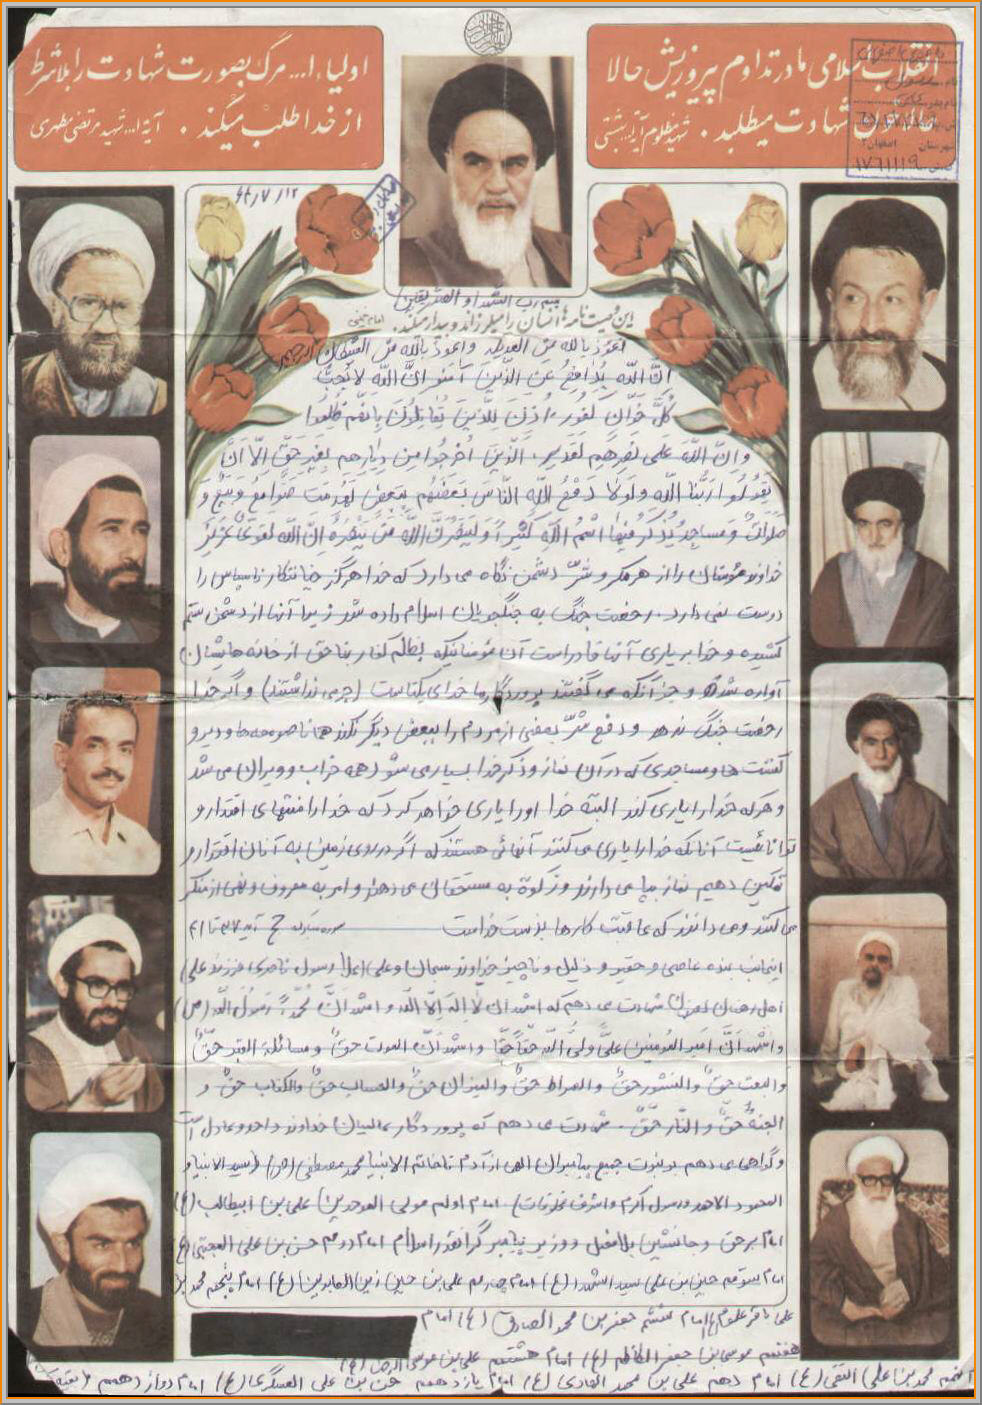 انقلاب اسلامی ما در تداوم پیروزیش حالا
شهادت میطلبد. شهید مظلوم آیة ا... بهشتی
اولیاء ا... مرگ بصورت شهادت را بلاشرط
از خدا طلب میکنند. آیة ا... شهید مرتضی مطهری
اصفهان
شهرستان
۱۷۶۱۱۱۹
بسم رب الشهداء و الصدیقین
این وصیت نامه ها انسان را میلرزاند و بیدار میکند. امام خمینی
اعوذ بالله من الشیطان الرجیم
اِنَّ اللّهَ یُدافِعُ عَنِ الَّذینَ آمَنُوا اِنَّ اللّهَ لا یُحِبُّ
کُلَّ خَوّانٍ کَفُورٍ. اُذِنَ لِلَّذینَ یُقاتَلُونَ بِاَنَّهُم ظُلِمُوا
وَ اِنَّ اللّهَ عَلی نَصرِهِم لَقَدیرٌ. اَلَّذینَ اُخرِجُوا مِن دِیارِهِم بِغَیرِ حَقٍّ اِلّا اَنْ
یَقُولُوا رَبُّنَا اللّهُ وَ لَولا دَفْعُ اللّهِ النّاسَ بَعضَهُم بِبَعضٍ لَهُدِّمَت صَوامِعُ وَ بِیَعٌ وَ
صَلَواتٌ وَ مَساجِدُ یُذکَرُ فیهَا اسْمُ اللّهِ کَثیراً وَ لَیَنصُرَنَّ اللّهُ مَن یَنصُرُهُ اِنَّ اللّهَ لَقَوِیٌّ عَزیزٌ
خداوند مؤمنان را از هر مکر و شرّ دشمن نگاه می دارد که خدا هرگز خیانتکار ناسپاس را
دوست نمی دارد. رخصت جنگ به جنگجویان اسلام داده شد زیرا آنها از دشمن ستم
کشیده و خدا بر یاری آنها قادر است آن مؤمنانیکه بظلم کفار بناحق از خانه هایشان
آواره شده و جز آنکه می گفتند پروردگار ما خدای یکتاست (جرمی نداشتند) و اگر خدا
رخصت جنگ ندهد و دفع شرّ بعضی از مردم را ببعض دیگر نکند همانا صومعه ها و دیر و
کنشت ها و مساجدی که در آن نماز و ذکر خدا بسیار می شود همه خراب و ویران می شد
و هر که خدا را یاری کند البته خدا او را یاری خواهد کرد که خدا را منتهای اقتدار و
توانائیست آنانکه خدا را یاری می کنند آنهائی هستند که اگر در روی زمین به آنان اقتدار و
تمکین دهیم نماز بپا می دارند و زکوة به مستحقان می دهند و امر به معروف و نهی از منکر
می کنند و می دانند که عاقبت کارها بدست خداست سوره مبارکه حج آیه ۳۷ تا ۴۱
اینجانب بنده عاصی و حقیر و ذلیل و ناچیز خداوند سبحان رسول نادری فرزند علی
اهل شهادت می دهم که اشهد ان لا اله الا الله و اشهد انّ محمّداً رسول الله (ص)
و اشهد انَّ امیر المؤمنین علیَّ ولیُّ الله حقّاً حقّا و اشهد انّ الموت حقٌ و مسائلة القبر حقٌ
و البعث حقٌ و النشور حقٌ و الصراط حقٌ و المیزان حقٌ و الحساب حقٌ و الکتاب حقٌ و
الجنة حقٌ و النّار حقٌ. شهادت می دهم که پروردگار عالمیان خداوند واحد و عادل است
و گواهی می دهم بر نبوت جمیع پیامبران الهی از آدم تا خاتم الانبیا محمد مصطفی (ص) (سید الانبیا و
المحمود الاحمد و رسول اکرم و اشرف مخلوقات). امام اولم مولی الموحدین علی بن ابیطالب (ع)
امام برحق و جانشین بلافصل و وزیر پیامبر گرانقدر اسلام امام دومم حسن بن علی المجتبی (ع)
امام سومم حسین بن علی سید الشهدا (ع) امام چهارمم علی بن حسین زین العابدین (ع) امام پنجمم محمد بن
علی باقر علوم (ع) امام ششمم جعفر بن محمد الصادق (ع) امام
هفتمم موسی بن جعفر الکاظم (ع) امام هشتمم علی بن موسی الرضا (ع)
امام نهمم محمد بن علی التقی (ع) امام دهمم علی بن محمد الهادی (ع) امام یازدهمم حسن بن علی العسکری (ع) امام دوازدهمم